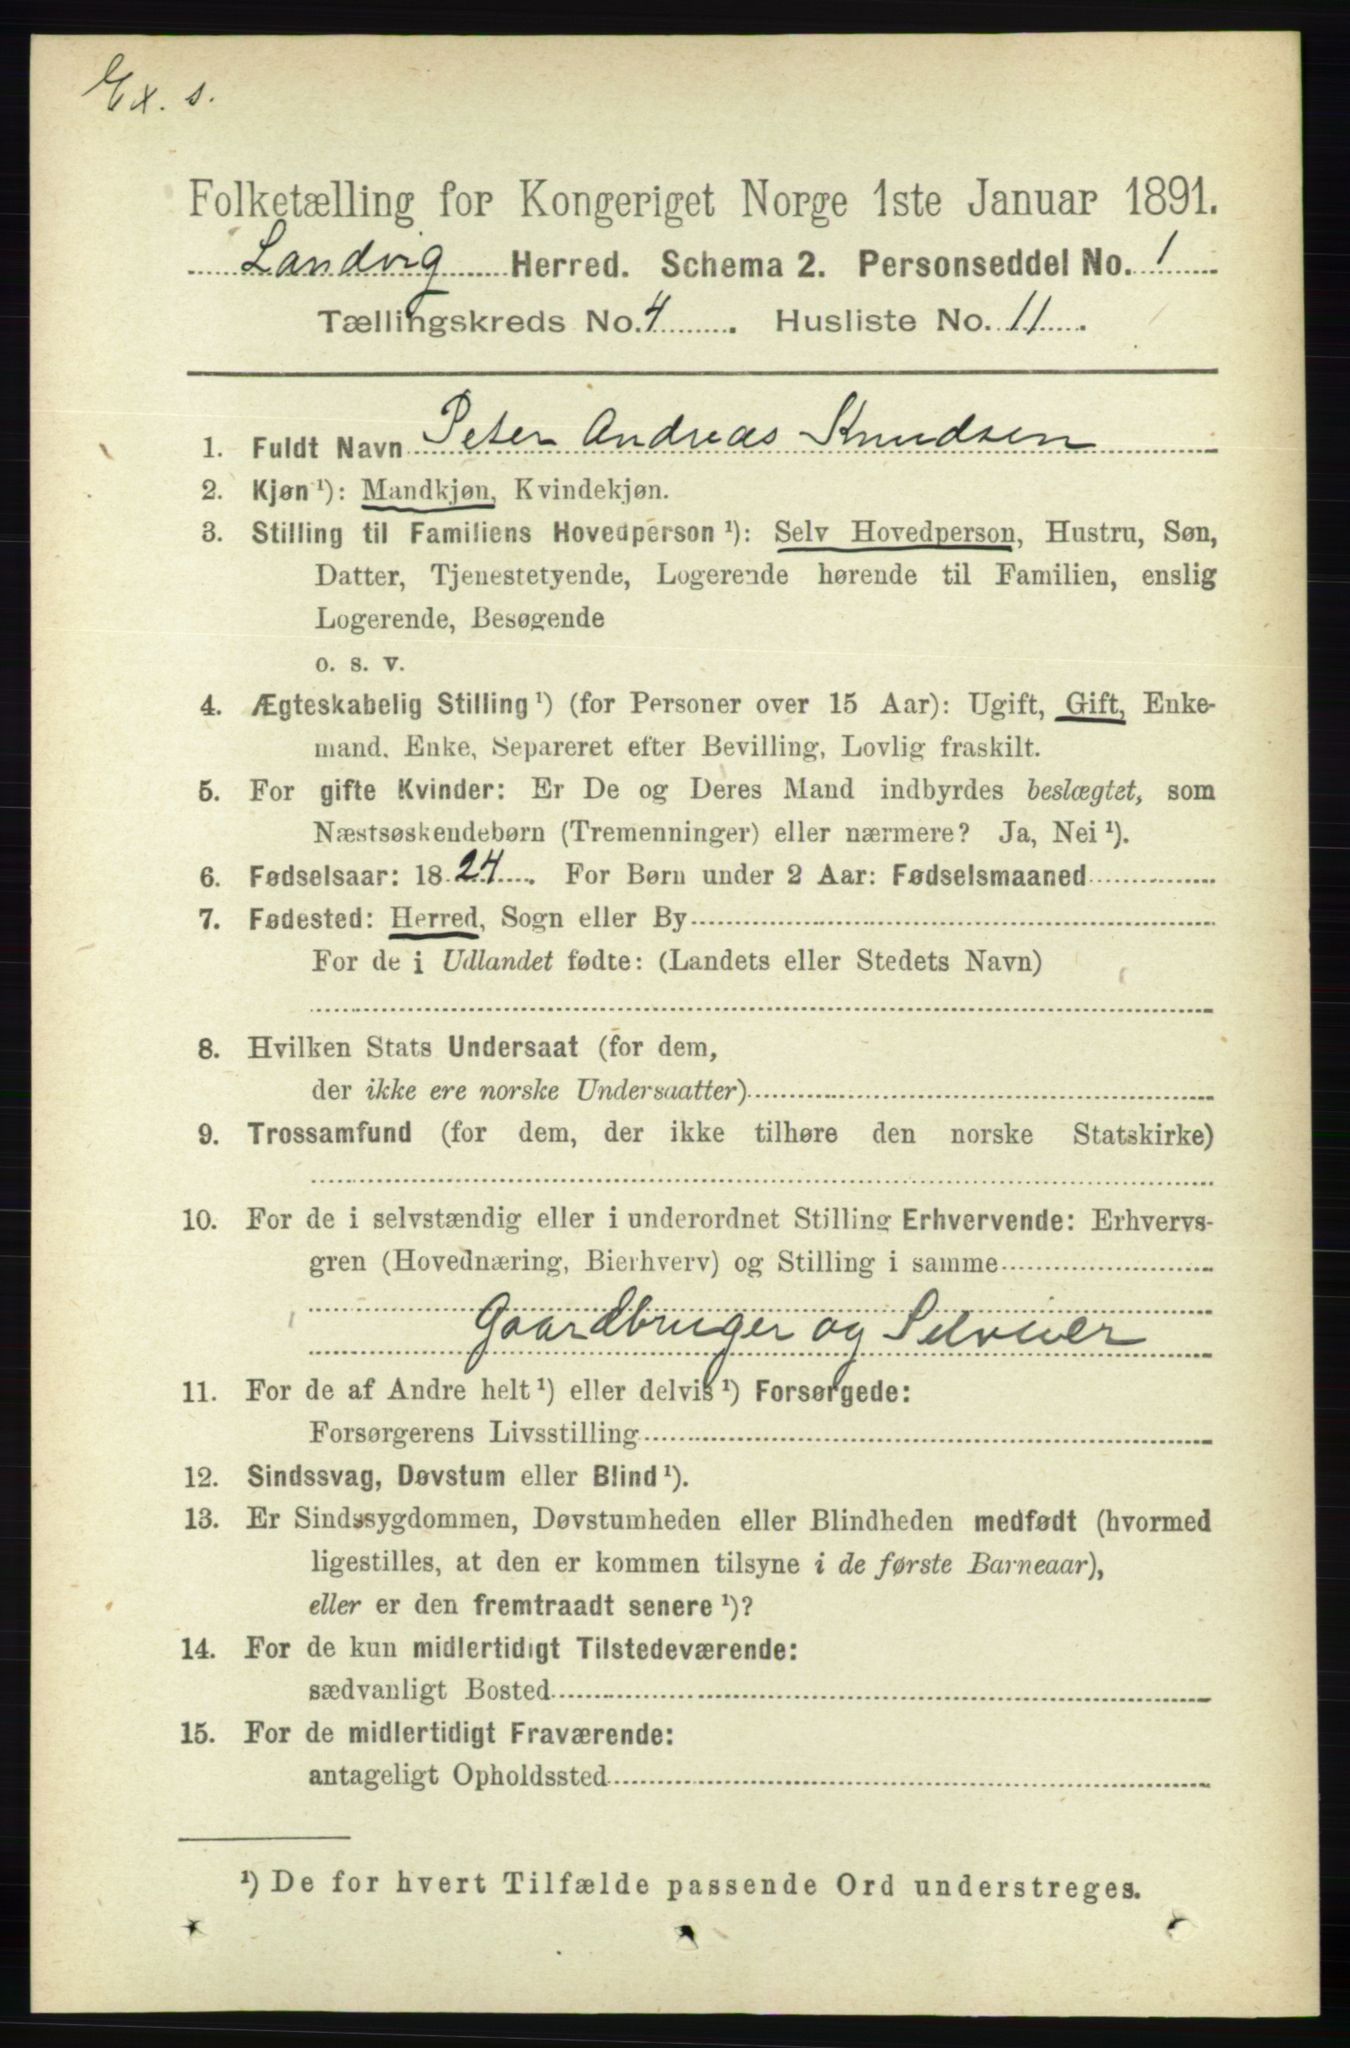 Ex. s.
Folketælling for Kongeriget Norge 1ste Januar 1891.
Landvig Herred. Schema 2. Personseddel No. 1
Tællingskreds No. 4. Husliste No. 11.
1. Fuldt Navn Peter Andreas Knudsen
2. Kjøn ¹): Mandkjøn, Kvindekjøn.
3. Stilling til Familiens Hovedperson ¹): Selv Hovedperson, Hustru, Søn,
Datter, Tjenestetyende, Logerende hørende til Familien, enslig
Logerende, Besøgende
o. s. v.
4. Ægteskabelig Stilling ¹) (for Personer over 15 Aar): Ugift, Gift, Enke-
mand, Enke, Separeret efter Bevilling, Lovlig fraskilt.
5. For gifte Kvinder: Er De og Deres Mand indbyrdes beslægtet, som
Næstsøskendebørn (Tremenninger) eller nærmere? Ja, Nei ¹).
6. Fødselsaar: 1824. For Børn under 2 Aar: Fødselsmaaned
7. Fødested: Herred, Sogn eller By
For de i Udlandet fødte: (Landets eller Stedets Navn)
8. Hvilken Stats Undersaat (for dem,
der ikke ere norske Undersaatter)
9. Trossamfund (for dem, der ikke tilhøre den norske Statskirke)
10. For de i selvstændig eller i underordnet Stilling Erhvervende: Erhvervs-
gren (Hovednæring, Bierhverv) og Stilling i samme
Gaardbruger og Selveier
11. For de af Andre helt ¹) eller delvis ¹) Forsørgede:
Forsørgerens Livsstilling
12. Sindssvag, Døvstum eller Blind ¹).
13. Er Sindssygdommen, Døvstumheden eller Blindheden medfødt (hvormed
ligestilles, at den er kommen tilsyne i de første Barneaar),
eller er den fremtraadt senere ¹)?
14. For de kun midlertidigt Tilstedeværende:
sædvanligt Bosted
15. For de midlertidigt Fraværende:
antageligt Opholdssted
¹) De for hvert Tilfælde passende Ord understreges.